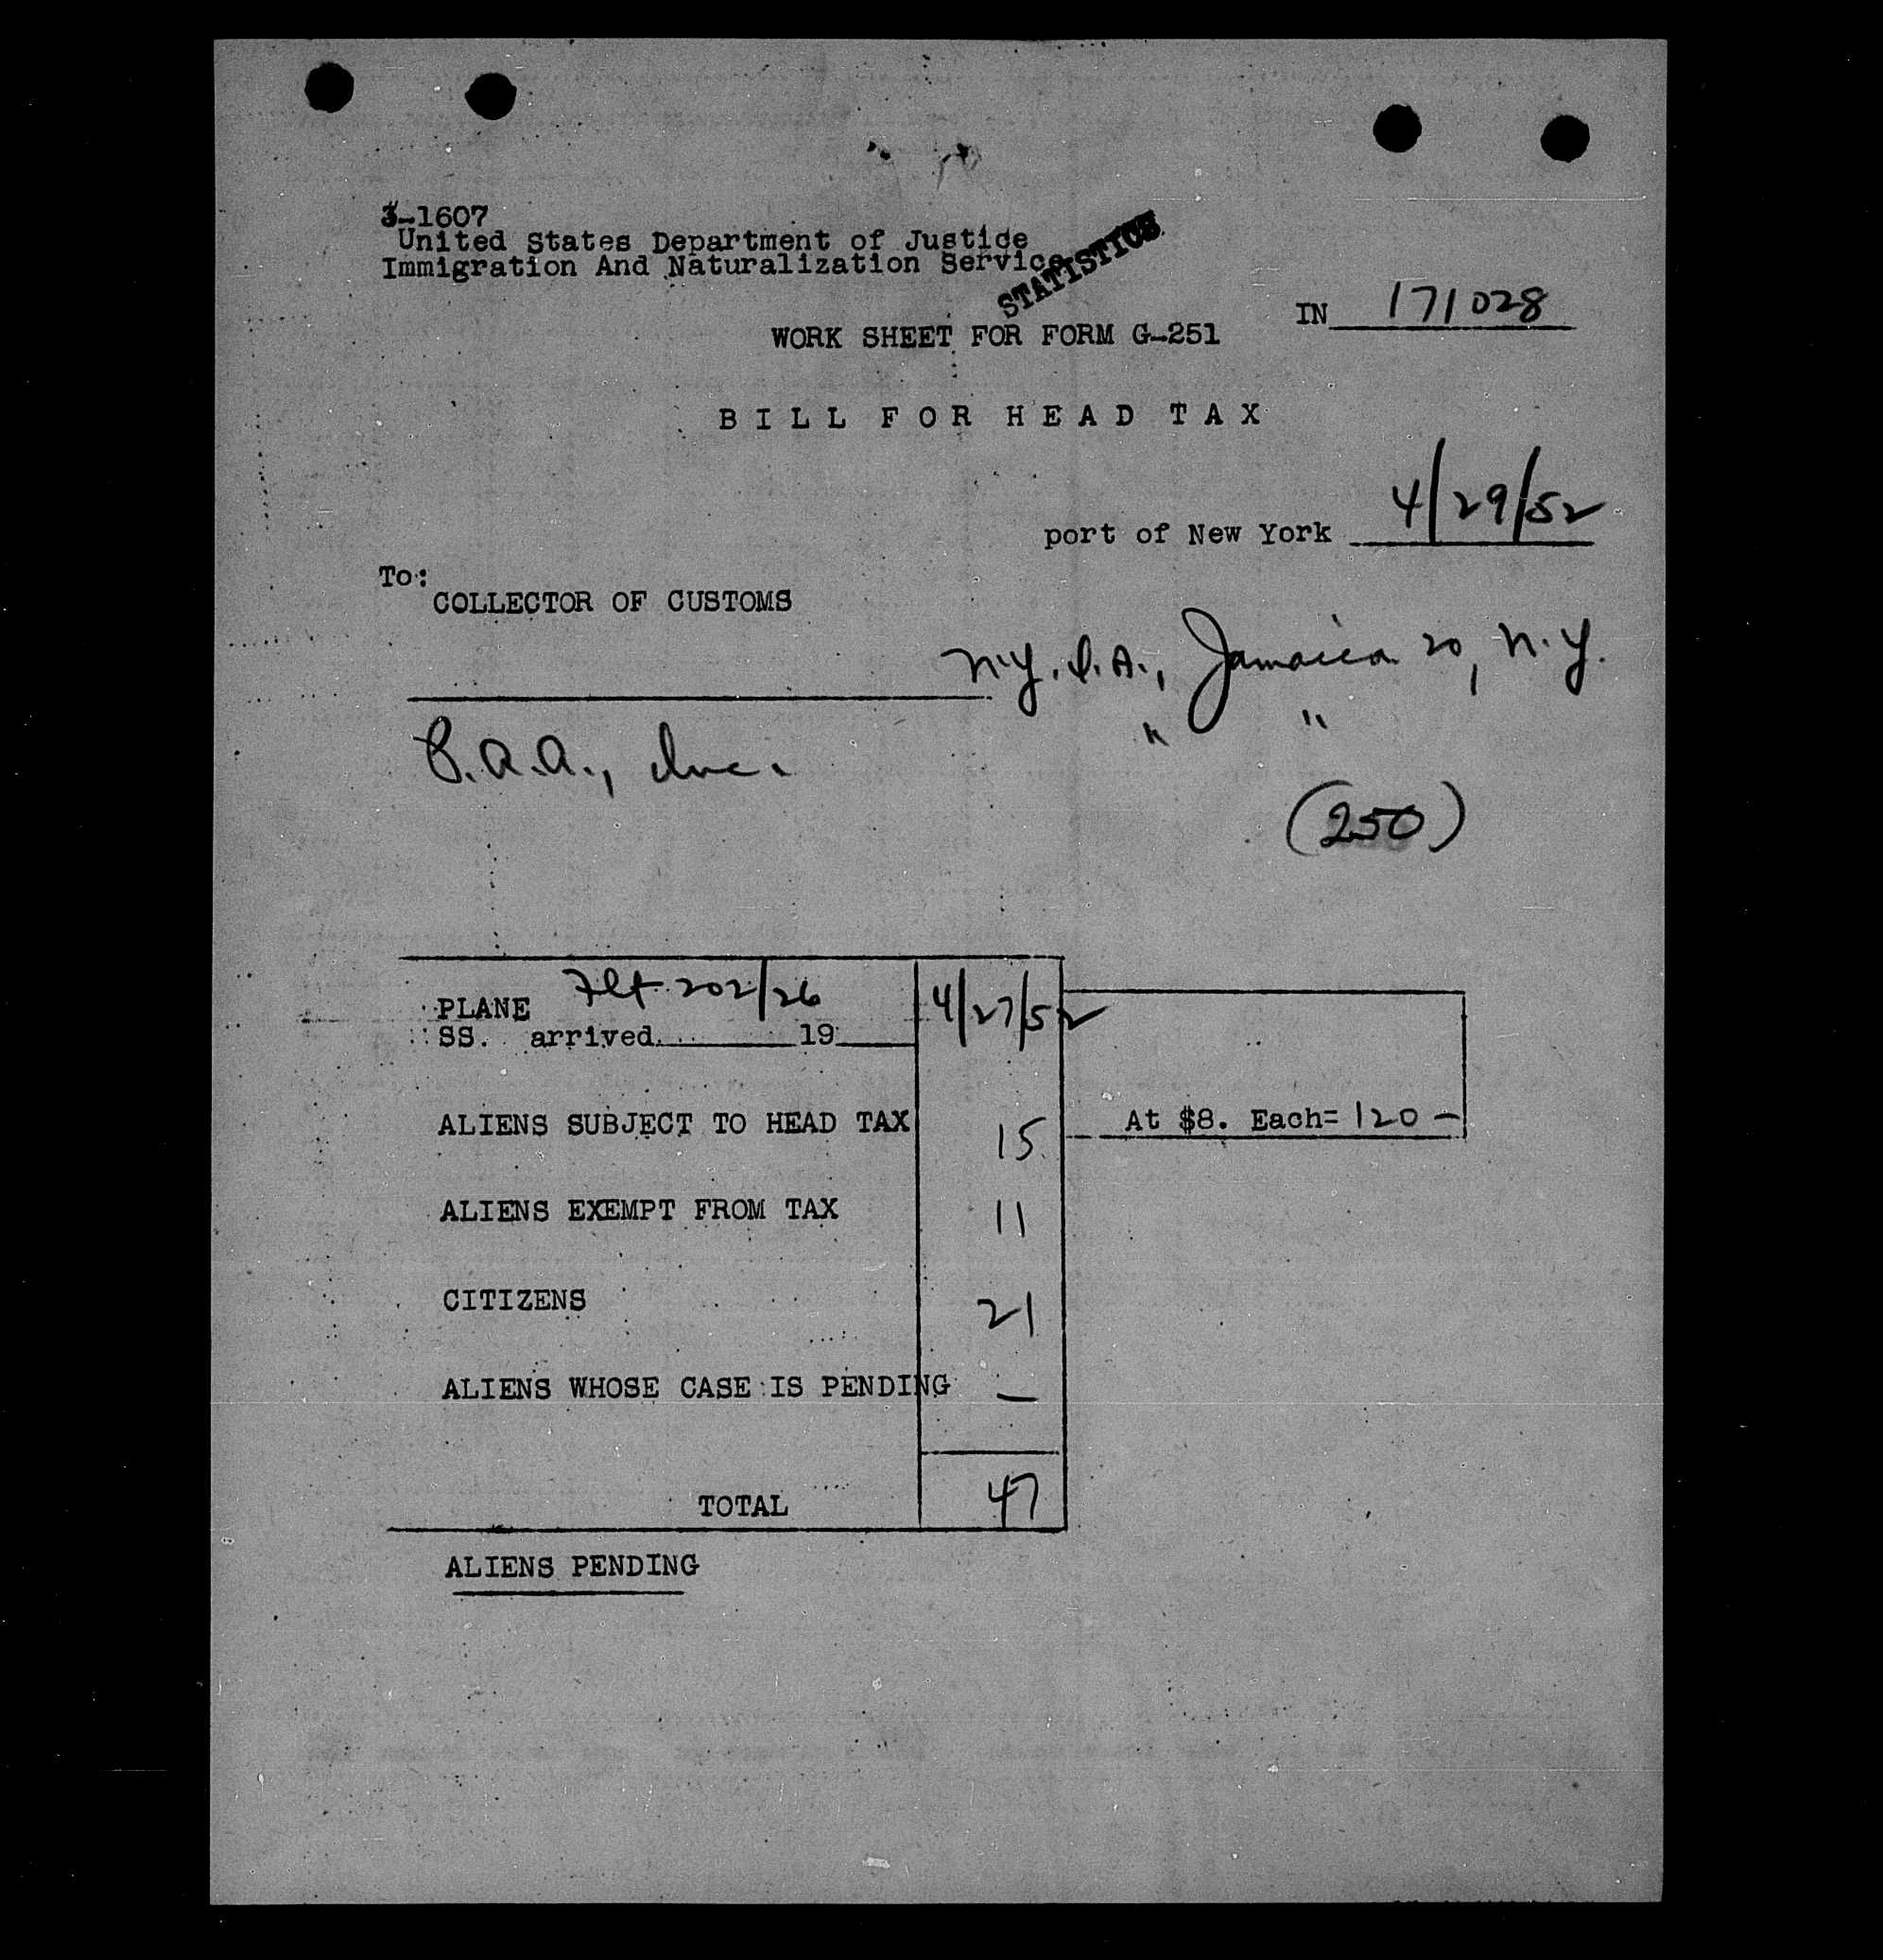 3-1607
United States Department of Justice
Immigration And Naturalization Service
STATISTICS
IN 171028
WORK SHEET FOR FORM G-251
BILL FOR HEAD TAX
port of New York 4/29/52
To:
COLLECTOR OF CUSTOMS
N.Y.I.A., Jamaica 20, N.Y.
" "
P.A.A., Inc.
(250)
PLANE Flt 202/26 4/27/52
SS. arrived 19
ALIENS SUBJECT TO HEAD TAX 15 At $8. Each= 120 —
ALIENS EXEMPT FROM TAX 11
CITIZENS 21
ALIENS WHOSE CASE IS PENDING —
TOTAL 47
ALIENS PENDING